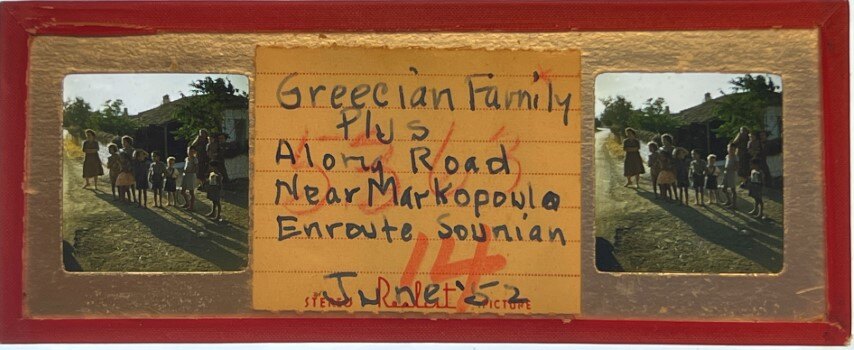 Greecian Family
Plus
Along Road
Near Markopoulo
Enroute Sounian
14
June '52
STEREO Realist PICTURE